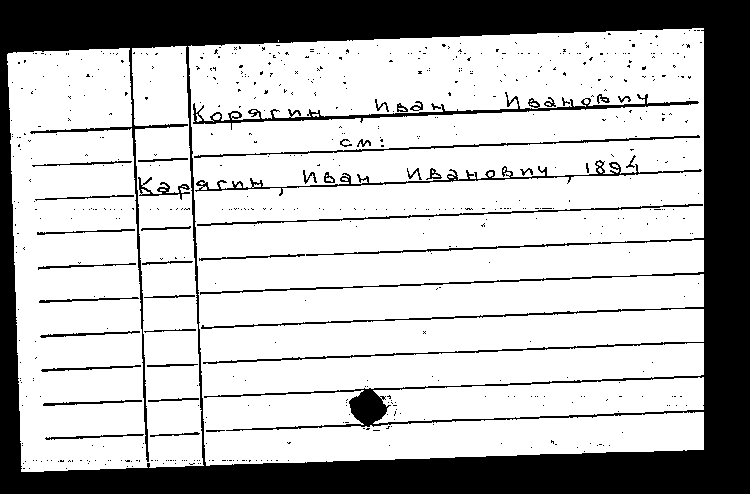 Корягин, Иван Иванович
см:
Карягин, Иван Иванович, 1894